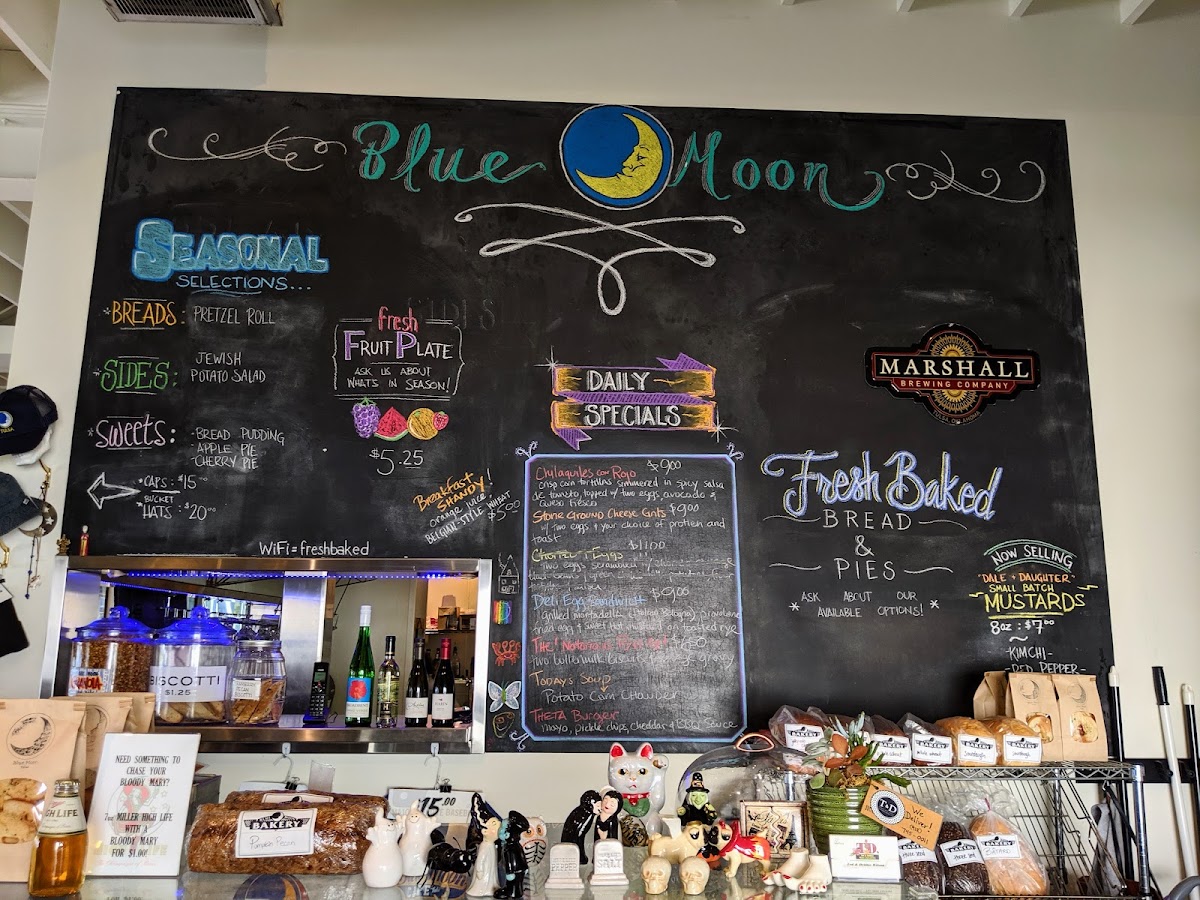 Blue Moon
SEASONAL
SELECTIONS...
*BREADS: PRETZEL ROLL
*SIDES: JEWISH
POTATO SALAD
*SWEETS: -BREAD PUDDING
-APPLE PIE
-CHERRY PIE
*CAPS: $15
BUCKET
*HATS: $20
WiFi=freshbaked
fresh
FRUIT PLATE
ASK US ABOUT
WHAT'S IN SEASON!
$5.25
Breakfast
SHANDY!
orange juice
BELGIAN-STYLE WHEAT
$5.00
DAILY
SPECIALS
Chilaquiles con Rojo $9.00
crisp corn tortillas simmered in spicy salsa
de tomato, topped w/ two eggs, avocado &
queso fresco
Stone Ground Cheese Grits $9.00
w/ two eggs & your choice of protien and
toast
Eggs $11.00
two eggs
Deli Egg Sandwich $9.00
grilled mortadella provolone
fried egg & sweet hot mustard on toasted rye
The
two buttermilk biscuits gravy
TODAYS SOUP
Potato Corn Chowder
THETA BURGER
mayo, pickle chips, cheddar & BBQ sauce
MARSHALL
BREWING COMPANY
Fresh Baked
BREAD
&
PIES
* ASK ABOUT OUR
AVAILABLE OPTIONS! *
NOW SELLING
"DALE & DAUGHTER"
SMALL BATCH
MUSTARDS
8oz: $7.00
~
-KIMCHI-
-RED PEPPER-
BISCOTTI
$1.25
Blue Moon
HIGH LIFE
NEED SOMETHING TO
CHASE YOUR
BLOODY MARY?
TRY MILLER HIGH LIFE
WITH A
BLOODY MARY
FOR $1.00!
BAKERY
Pumpkin Pecan
$15.00
SALT
T&D
We
Deliver!
BAKERY
BAKERY
BAKERY
BAKERY